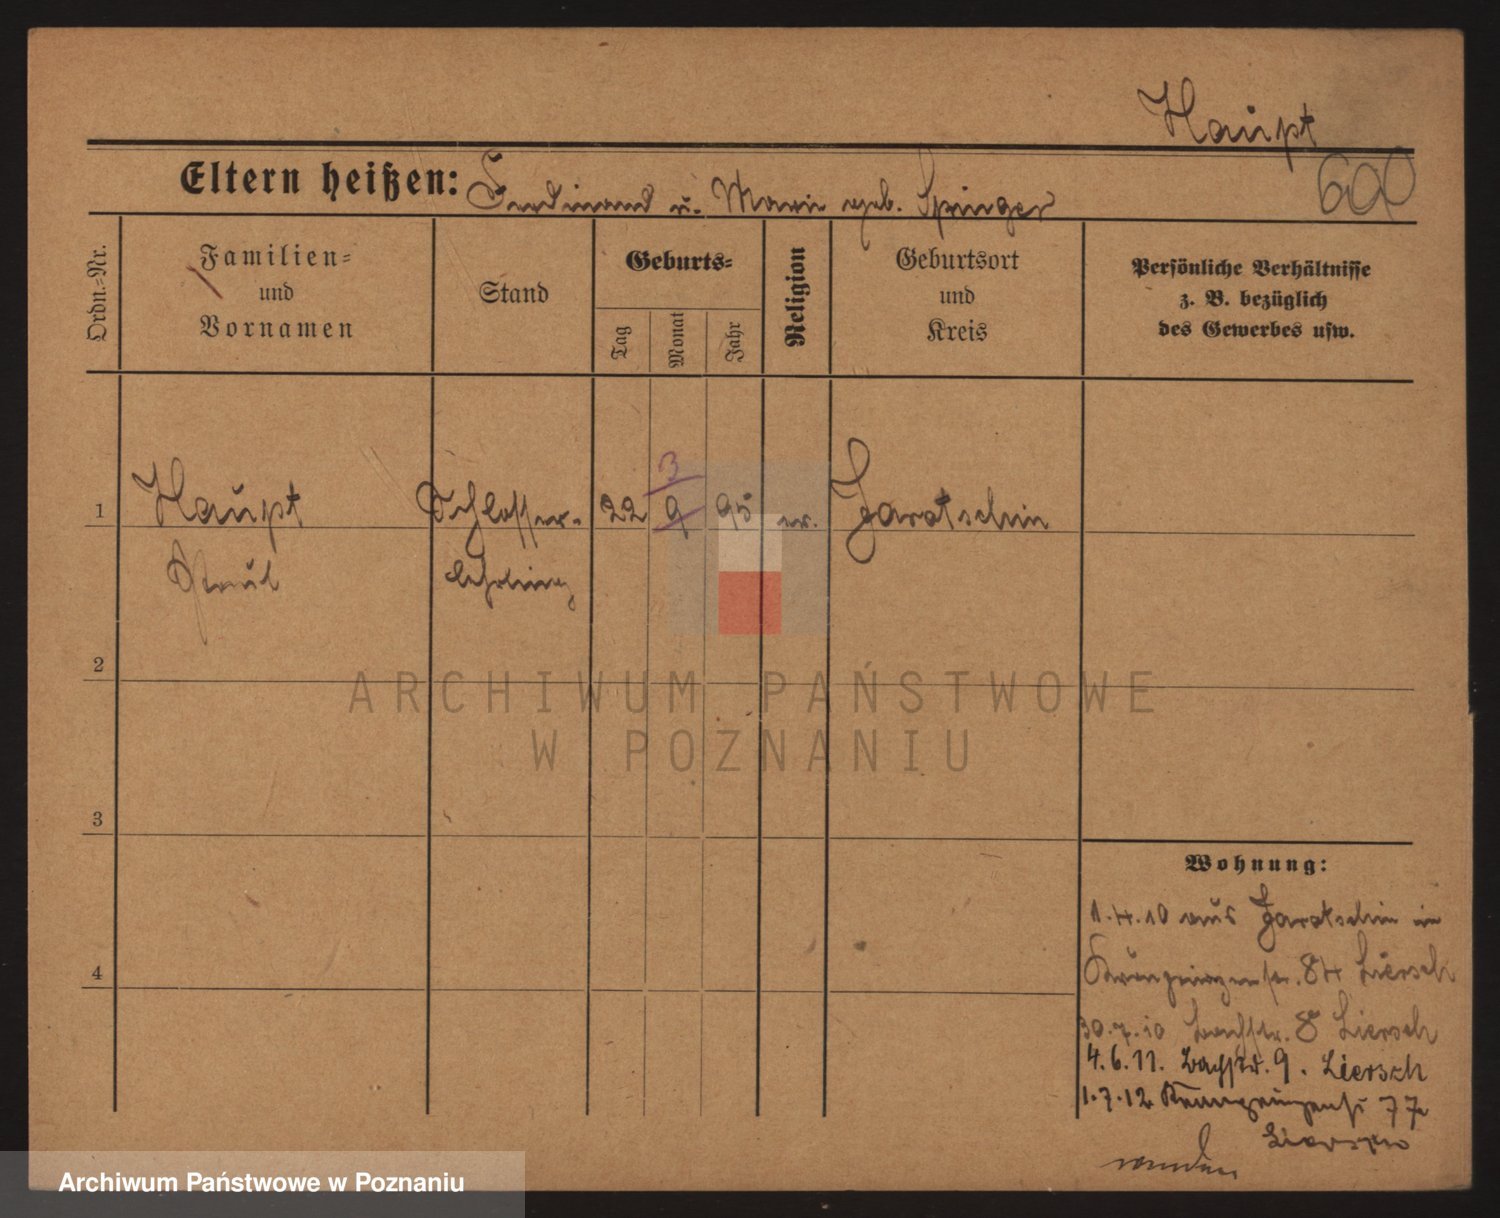 Haupt
600
Eltern heißen: Ferdinand u. Marie geb. Springer
Ordn.-Nr.
Familien-
und
Vornamen
Stand
Geburts-
Tag
Monat
Jahr
Religion
Geburtsort
und
Kreis
Persönliche Verhältnisse
z. B. bezüglich
des Gewerbes usw.
3
1 Haupt Schlosser- 22 9 95 ev. Jarotschin
Paul lehrling
2
ARCHIWUM PAŃSTWOWE
W POZNANIU
3
4
Wohnung:
1.4.10 aus Jarotschin in
Kronprinzenstr. 84 Liersch
30.7.10 Bachstr. 8 Liersch
4.6.11. Bachstr. 9. Liersch
1.7.12 Kronprinzenstr 77
Liersch
Archiwum Państwowe w Poznaniu